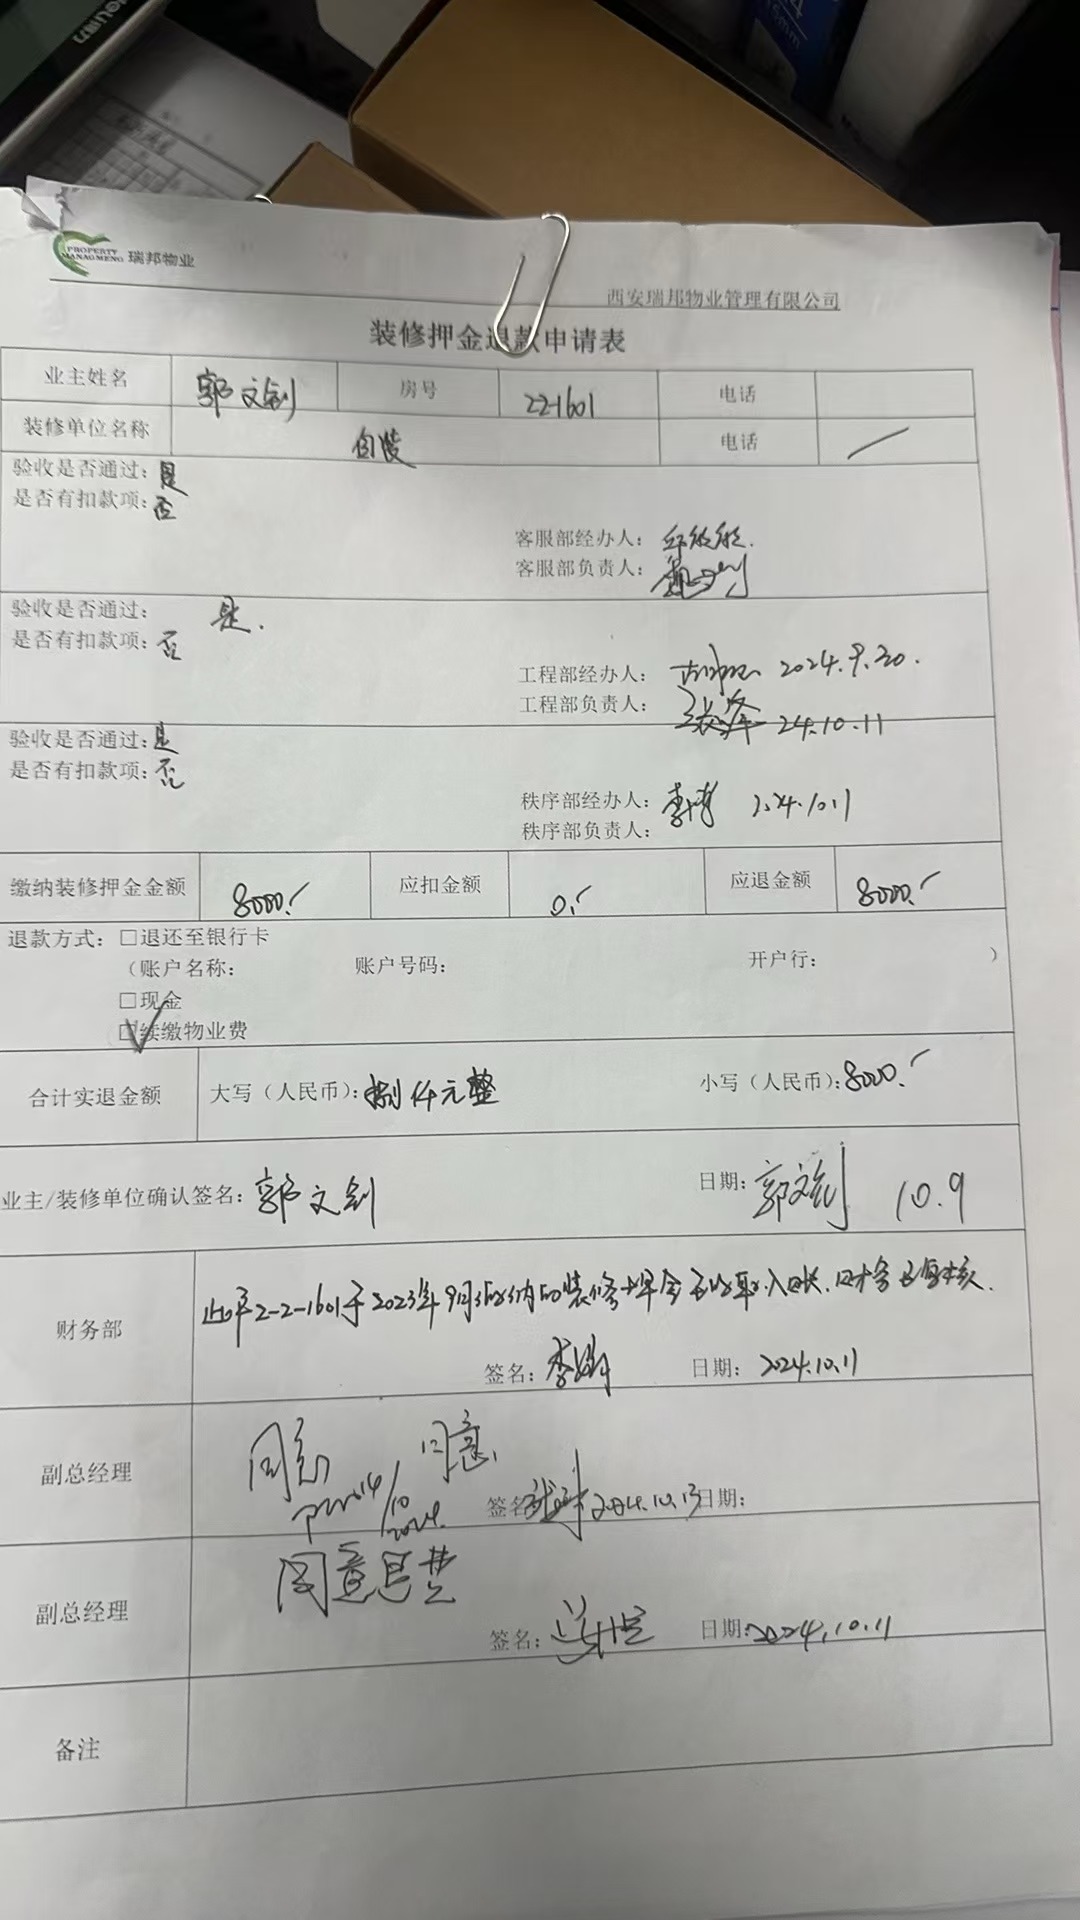 PROPERTY
MANAGMENG 瑞邦物业
西安瑞邦物业管理有限公司
装修押金退款申请表
业主姓名 郭文剑 房号 22-1601 电话
装修单位名称 自装 电话
验收是否通过:是
是否有扣款项:否
客服部经办人:
客服部负责人:
验收是否通过: 是.
是否有扣款项:否
工程部经办人: 2024.9.30.
工程部负责人: 24.10.11
验收是否通过:是
是否有扣款项:否
秩序部经办人: 2024.10.11
秩序部负责人:
缴纳装修押金金额 8000.- 应扣金额 0.- 应退金额 8000.-
退款方式: □退还至银行卡
(账户名称: 账户号码: 开户行: )
□现金
☑续缴物业费
合计实退金额 大写(人民币):捌仟元整 小写(人民币):8000.-
业主/装修单位确认签名:郭文剑 日期:郭文剑 10.9
财务部 此户2-2-1601于2023年9月缴纳的装修押金已收取入账,财务已复核.
签名: 日期: 2024.10.11
副总经理 同意 同意
14/10 2024.
签名: 2024.10.13 日期:
副总经理 同意
签名: 日期:2024.10.11
备注